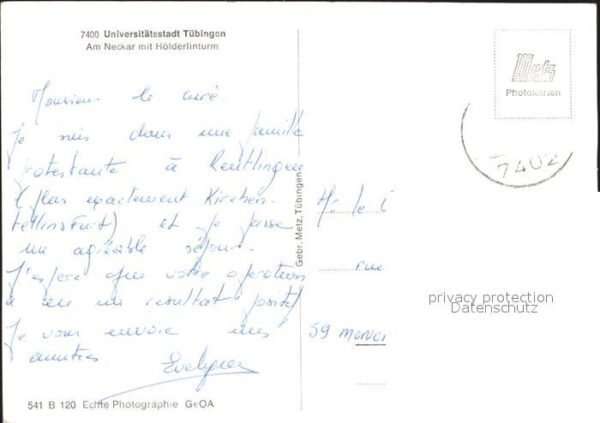 7400 Universitätsstadt Tübingen
Am Neckar mit Hölderlinturm
Monsieur le curé.
Je suis dans une famille
protestante à Reutlingen
(plus exactement Kirchen-
tellinsfurt) et je passe
un agréable séjour.
J'espère que votre opération
a eu un résultat positif
Je vous envoie mes
amitiés
Evelyne
541 B 120 Echte Photographie GeOA
Gebr. Metz, Tübingen
Metz
Photokarten
7402
Mr. le c
rue
59
privacy protection
Datenschutz